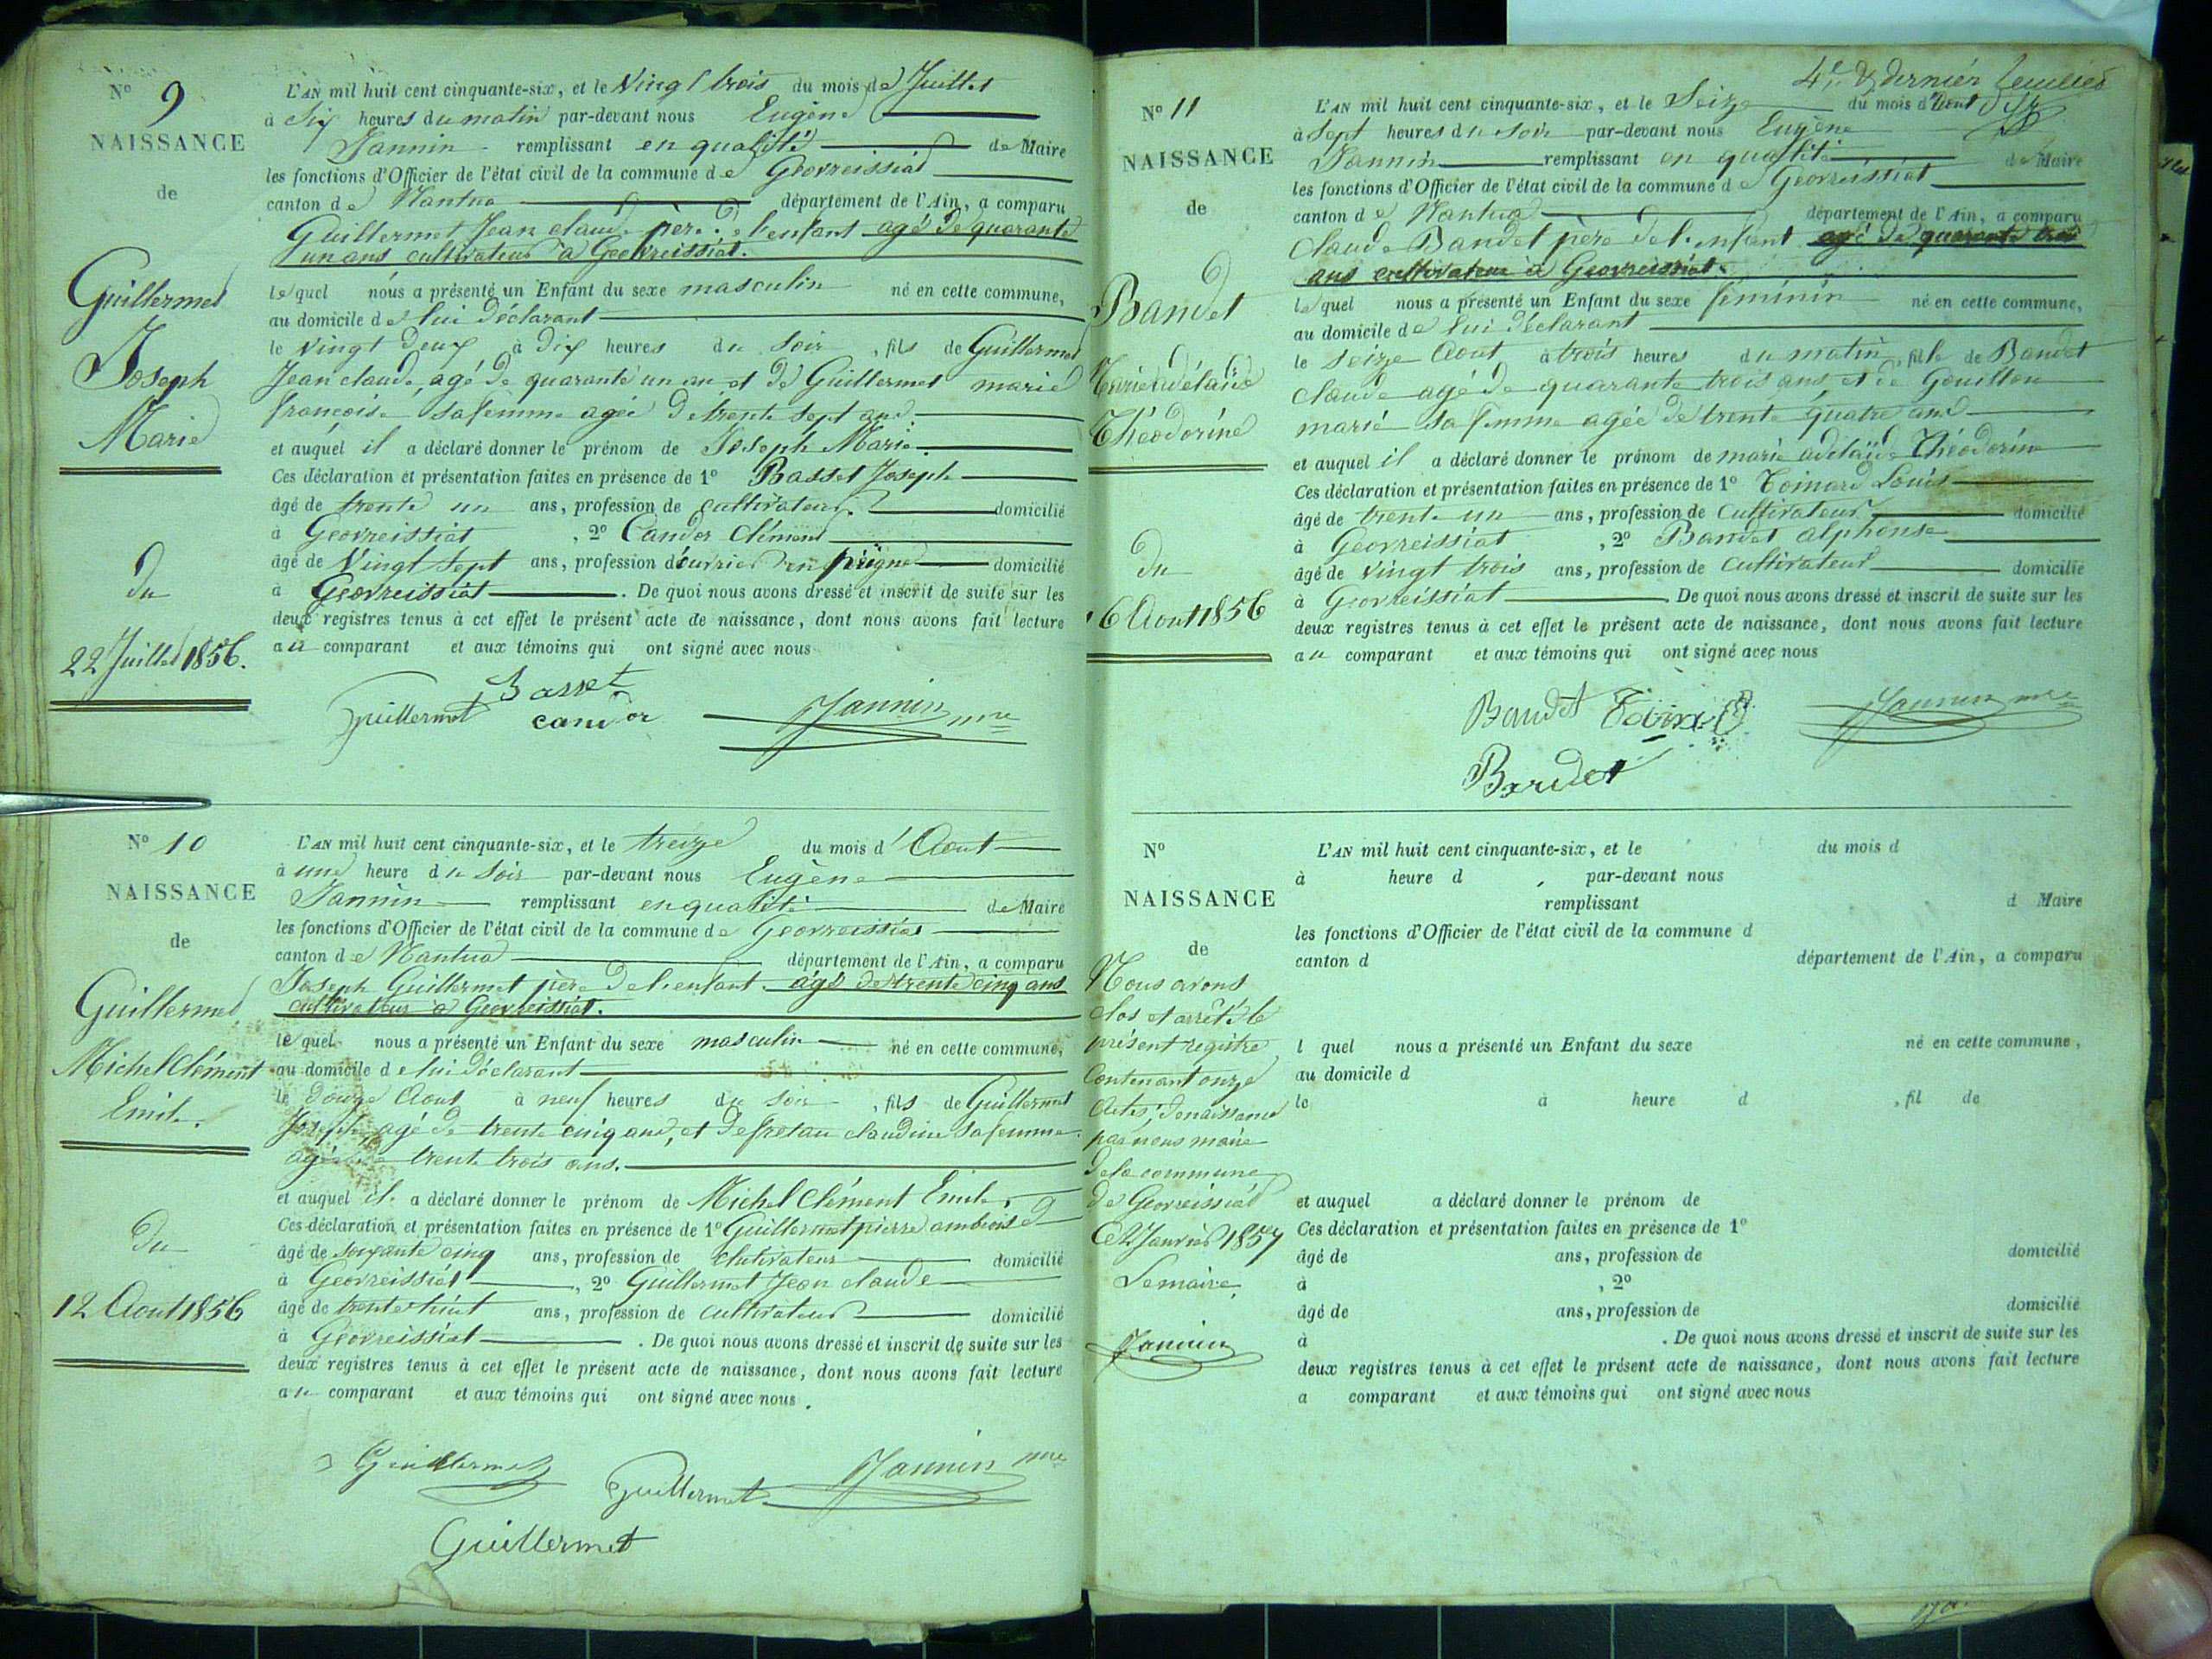 N° 9
NAISSANCE
de
Guillermet
Joseph
Marie
du
22 Juillet 1856.
L'AN mil huit cent cinquante-six, et le Vingt trois du mois de Juillet
à dix heures du matin par-devant nous Eugène
Jannin remplissant en qualité de Maire
les fonctions d'Officier de l'état civil de la commune de Geovreissiat
canton de Nantua département de l'Ain, a comparu
Guillermet Jean claude père de l'enfant agé de quarante
un ans cultivateur à Geovreissiat.
lequel nous a présenté un Enfant du sexe masculin né en cette commune,
au domicile de lui déclarant
le Vingt deux à dix heures du soir, fils de Guillermet
Jean claude, agé de quarante un an et de Guillermet marie
françoise sa femme agée de trente sept ans
et auquel il a déclaré donner le prénom de Joseph Marie.
Ces déclaration et présentation faites en présence de 1° Basset Joseph
âgé de trente un ans, profession de cultivateur. domicilié
à Geovreissiat, 2° Candor Clément
âgé de Vingt sept ans, profession d'ouvrier en peigne domicilié
à Geovreissiat. De quoi nous avons dressé et inscrit de suite sur les
deux registres tenus à cet effet le présent acte de naissance, dont nous avons fait lecture
au comparant et aux témoins qui ont signé avec nous
Basset
Guillermet candor Jannin mre
N° 10
NAISSANCE
de
Guillermet
Michel Clément
Emile.
du
12 Aout 1856
L'AN mil huit cent cinquante-six, et le treize du mois d'Aout
à une heure du soir par-devant nous Eugène
Jannin remplissant en qualité de Maire
les fonctions d'Officier de l'état civil de la commune de Geovreissiat
canton de Nantua département de l'Ain, a comparu
Joseph Guillermet père de l'enfant agé de trente cinq ans
cultivateur à Geovreissiat.
lequel nous a présenté un Enfant du sexe masculin né en cette commune,
au domicile de lui déclarant
le douze Aout à neuf heures du soir, fils de Guillermet
Joseph agé de trente cinq ans, et de claudine sa femme
agée de trente trois ans.
et auquel il a déclaré donner le prénom de Michel Clément Emile.
Ces déclaration et présentation faites en présence de 1° Guillermet pierre ambroise
âgé de soixante cinq ans, profession de cultivateur domicilié
à Geovreissiat, 2° Guillermet Jean claude
âgé de trente huit ans, profession de cultivateur domicilié
à Geovreissiat. De quoi nous avons dressé et inscrit de suite sur les
deux registres tenus à cet effet le présent acte de naissance, dont nous avons fait lecture
au comparant et aux témoins qui ont signé avec nous.
Guillermet Guillermet Jannin mre
Guillermet
4e & dernier feuillet
N° 11
NAISSANCE
de
Bandet
Marie adélaïde
Théodorine
du
16 Aout 1856
L'AN mil huit cent cinquante-six, et le Seize du mois d'Aout
à Sept heures du soir par-devant nous Eugène
Jannin remplissant en qualité de Maire
les fonctions d'Officier de l'état civil de la commune de Geovreissiat
canton de Nantua département de l'Ain, a comparu
Claude Bandet père de l'enfant agé de quarante trois
ans cultivateur à Geovreissiat.
lequel nous a présenté un Enfant du sexe féminin né en cette commune,
au domicile de lui déclarant
le seize Aout à trois heures du matin, fille de Bandet
claude agé de quarante trois ans et de Gouillon
marie sa femme agée de trente quatre ans
et auquel il a déclaré donner le prénom de marie adélaïde Théodorine
Ces déclaration et présentation faites en présence de 1° Toinard Louis
âgé de trente un ans, profession de Cultivateur domicilié
à Geovreissiat, 2° Bandet alphonse
âgé de Vingt trois ans, profession de Cultivateur domicilié
à Geovreissiat De quoi nous avons dressé et inscrit de suite sur les
deux registres tenus à cet effet le présent acte de naissance, dont nous avons fait lecture
au comparant et aux témoins qui ont signé avec nous
Bandet Toinard Jannin mre
Bandet
N°
NAISSANCE
de
Nous avons
clos et arrêté le
présent registre
Contenant onze
Actes de naissance
par nous maire
de la commune
de Geovreissiat
Ce 2 Janvier 1857
Le maire,
Jannin
L'AN mil huit cent cinquante-six, et le du mois d
à heure d , par-devant nous
remplissant d Maire
les fonctions d'Officier de l'état civil de la commune d
canton d département de l'Ain, a comparu
l quel nous a présenté un Enfant du sexe né en cette commune,
au domicile d
le à heure d , fil de
et auquel a déclaré donner le prénom de
Ces déclaration et présentation faites en présence de 1°
âgé de ans, profession de domicilié
à , 2°
âgé de ans, profession de domicilié
à . De quoi nous avons dressé et inscrit de suite sur les
deux registres tenus à cet effet le présent acte de naissance, dont nous avons fait lecture
a comparant et aux témoins qui ont signé avec nous